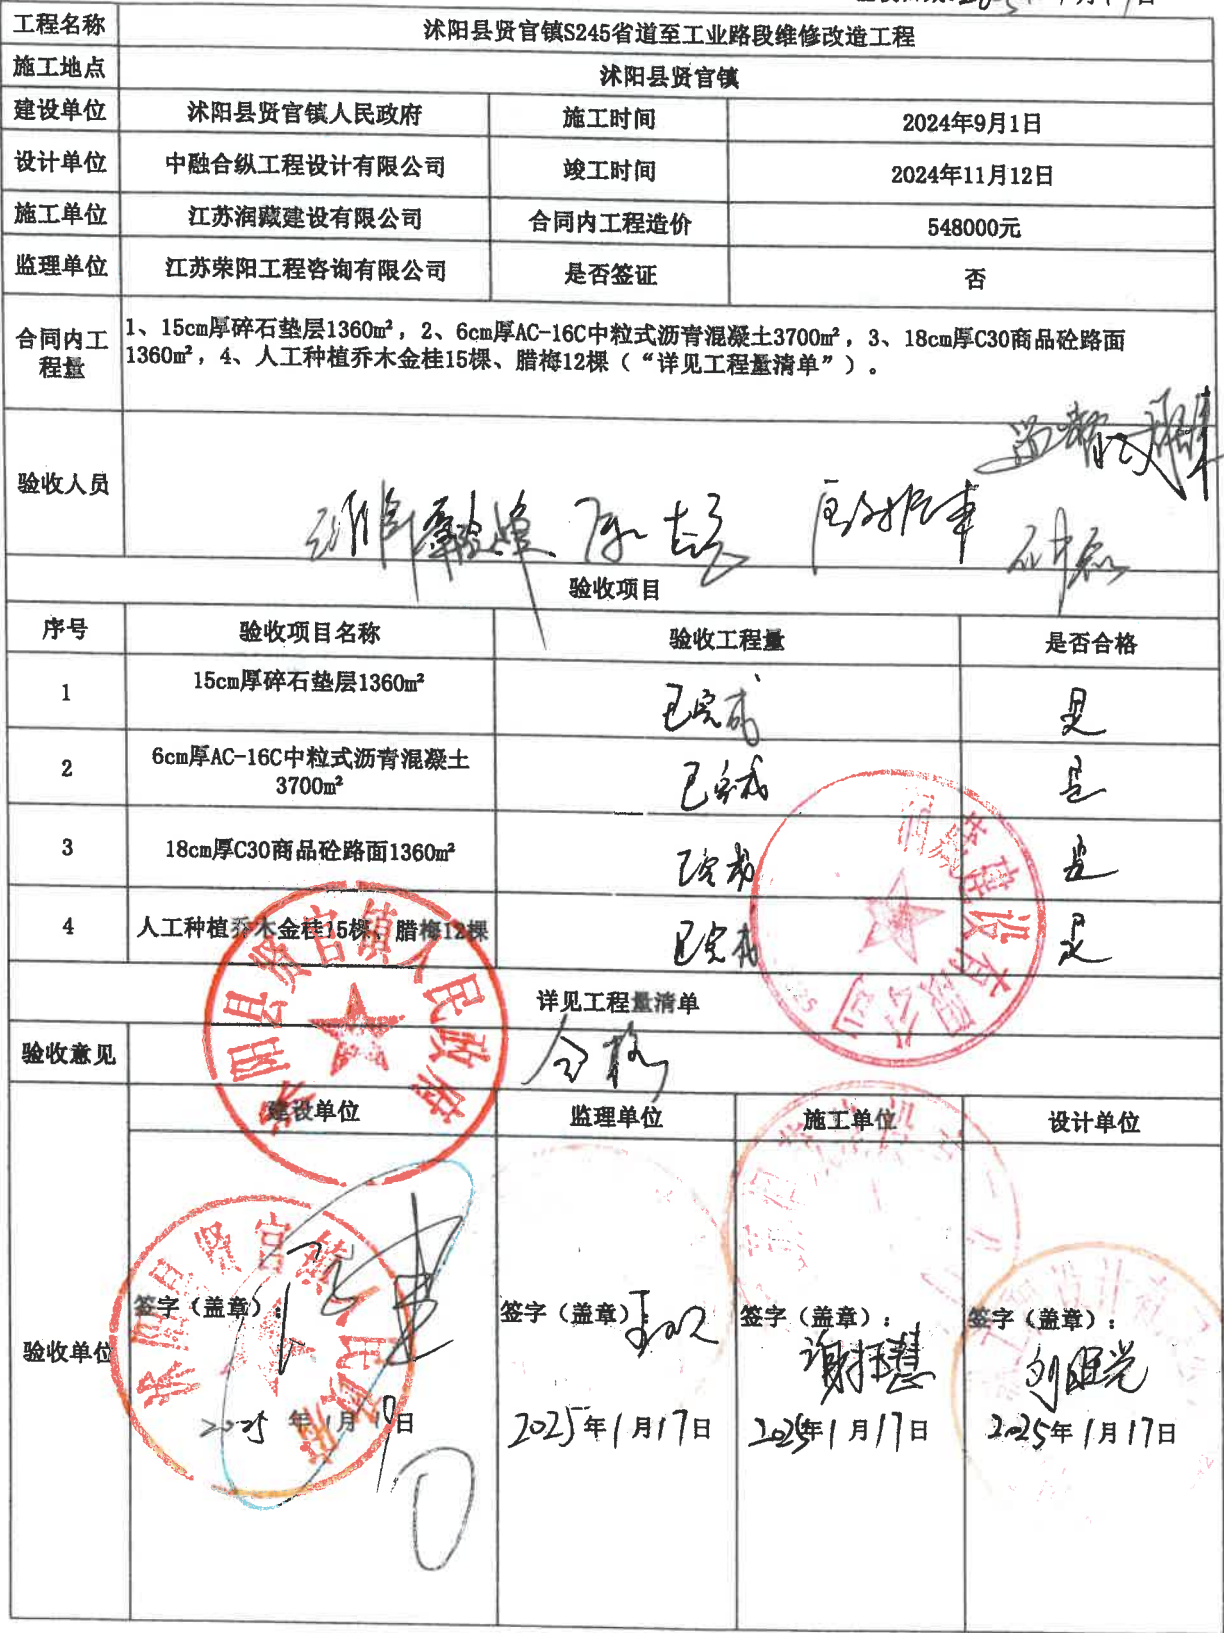 工程名称 沭阳县贤官镇S245省道至工业路段维修改造工程
施工地点 沭阳县贤官镇
建设单位 沭阳县贤官镇人民政府 施工时间 2024年9月1日
设计单位 中融合纵工程设计有限公司 竣工时间 2024年11月12日
施工单位 江苏润藏建设有限公司 合同内工程造价 548000元
监理单位 江苏荣阳工程咨询有限公司 是否签证 否
合同内工程量 1、15cm厚碎石垫层1360m²，2、6cm厚AC-16C中粒式沥青混凝土3700m²，3、18cm厚C30商品砼路面
1360m²，4、人工种植乔木金桂15棵、腊梅12棵（“详见工程量清单”）。
验收人员
验收项目
序号 验收项目名称 验收工程量 是否合格
1 15cm厚碎石垫层1360m² 已完成 是
2 6cm厚AC-16C中粒式沥青混凝土
3700m² 已完成 是
3 18cm厚C30商品砼路面1360m² 已完成 是
4 人工种植乔木金桂15棵、腊梅12棵 已完成 是
详见工程量清单
验收意见 合格
沭阳县贤官镇人民政府
建设有限公司
验收单位
建设单位 监理单位 施工单位 设计单位
签字（盖章）： 签字（盖章） 签字（盖章）： 签字（盖章）：
沭阳县贤官镇人民政府
2025年1月 日 2025年1月17日 2025年1月17日 2025年1月17日